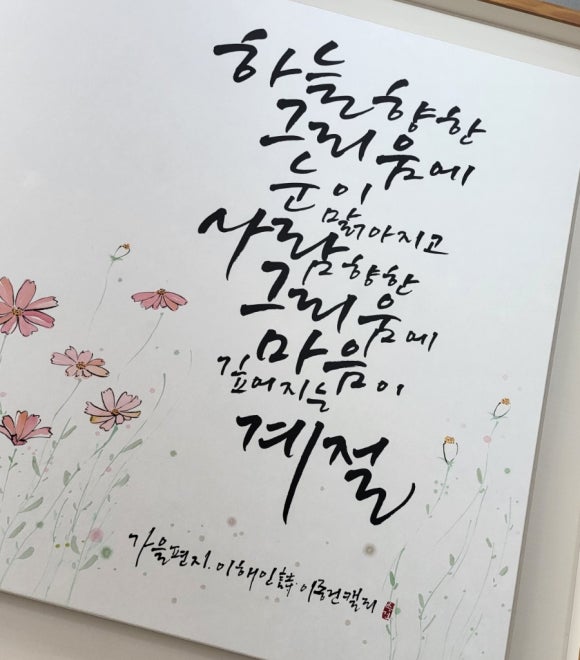 하늘 향한
그리움에
눈이
맑아지고
사람 향한
그리움에
마음이
깊어지는
계절
가을편지. 이해인 詩. 이종건 캘리